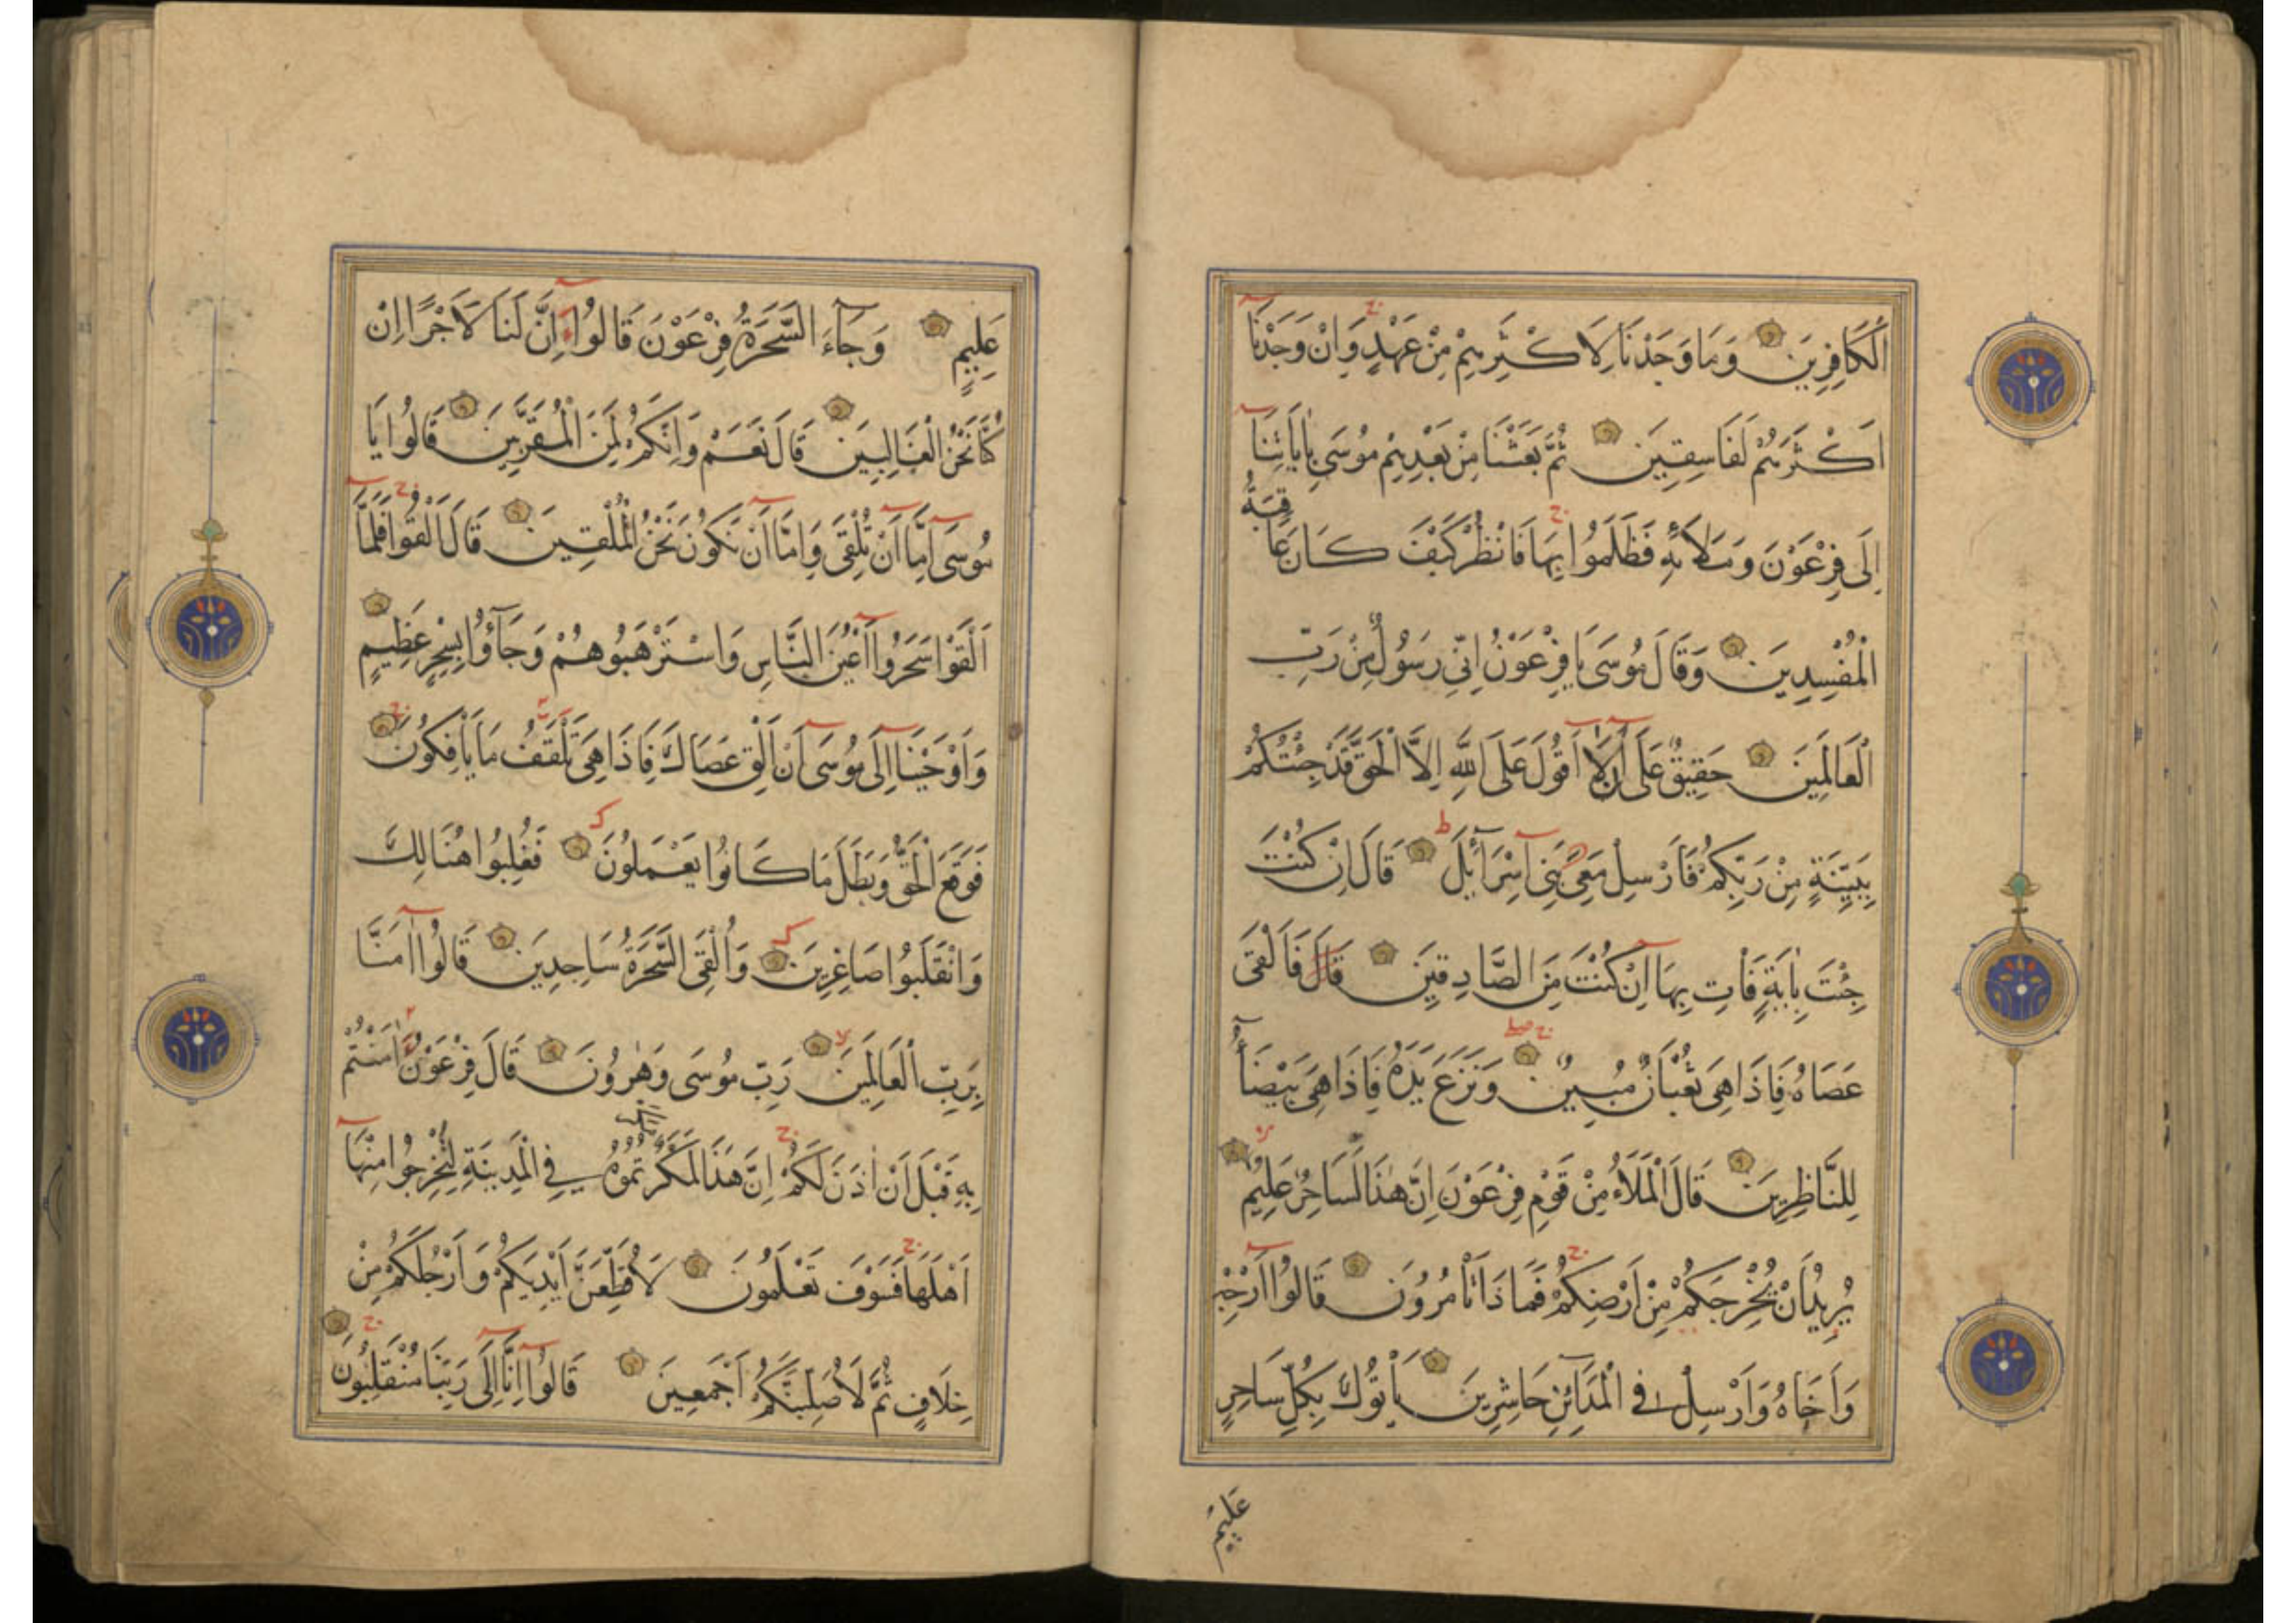 الْكَافِرِينَ وَمَا وَجَدْنَا لِاَكْثَرِهِمْ مِنْ عَهْدٍ وَاِنْ وَجَدْنَا
اَكْثَرَهُمْ لَفَاسِقِينَ ثُمَّ بَعَثْنَا مِنْ بَعْدِهِمْ مُوسَى بِاٰيَاتِنَا
اِلَى فِرْعَوْنَ وَمَلَائِهِ فَظَلَمُوا بِهَا فَانْظُرْ كَيْفَ كَانَ عَاقِبَةُ
الْمُفْسِدِينَ وَقَالَ مُوسَى يَا فِرْعَوْنُ اِنِّي رَسُولٌ مِنْ رَبِّ
الْعَالَمِينَ حَقِيقٌ عَلَى اَنْ لَا اَقُولَ عَلَى اللّٰهِ اِلَّا الْحَقَّ قَدْ جِئْتُكُمْ
بِبَيِّنَةٍ مِنْ رَبِّكُمْ فَاَرْسِلْ مَعِيَ بَنِي اِسْرَآئِلَ قَالَ اِنْ كُنْتَ
جِئْتَ بِاٰيَةٍ فَأْتِ بِهَا اِنْ كُنْتَ مِنَ الصَّادِقِينَ قَالَ فَاَلْقَى
عَصَاهُ فَاِذَا هِيَ ثُعْبَانٌ مُبِينٌ وَنَزَعَ يَدَهُ فَاِذَا هِيَ بَيْضَآءُ
لِلنَّاظِرِينَ قَالَ الْمَلَاُ مِنْ قَوْمِ فِرْعَوْنَ اِنَّ هٰذَا لَسَاحِرٌ عَلِيمٌ
يُرِيدُ اَنْ يُخْرِجَكُمْ مِنْ اَرْضِكُمْ فَمَاذَا تَأْمُرُونَ قَالُوا اَرْجِهْ
وَاَخَاهُ وَاَرْسِلْ فِي الْمَدَآئِنِ حَاشِرِينَ يَأْتُوكَ بِكُلِّ سَاحِرٍ
عَلِيمٍ
عَلِيمٍ وَجَآءَ السَّحَرَةُ فِرْعَوْنَ قَالُوا ءَاِنَّ لَنَا لَاَجْرًا اِنْ
كُنَّا نَحْنُ الْغَالِبِينَ قَالَ نَعَمْ وَاِنَّكُمْ لَمِنَ الْمُقَرَّبِينَ قَالُوا يَا
مُوسَى اِمَّا اَنْ تُلْقِيَ وَاِمَّا اَنْ نَكُونَ نَحْنُ الْمُلْقِينَ قَالَ اَلْقُوا فَلَمَّا
اَلْقَوْا سَحَرُوا اَعْيُنَ النَّاسِ وَاسْتَرْهَبُوهُمْ وَجَآؤُا بِسِحْرٍ عَظِيمٍ
وَاَوْحَيْنَا اِلَى مُوسَى اَنْ اَلْقِ عَصَاكَ فَاِذَا هِيَ تَلَقَّفُ مَا يَأْفِكُونَ
فَوَقَعَ الْحَقُّ وَبَطَلَ مَا كَانُوا يَعْمَلُونَ فَغُلِبُوا هُنَالِكَ
وَانْقَلَبُوا صَاغِرِينَ وَاُلْقِيَ السَّحَرَةُ سَاجِدِينَ قَالُوا اٰمَنَّا
بِرَبِّ الْعَالَمِينَ رَبِّ مُوسَى وَهٰرُونَ قَالَ فِرْعَوْنُ ءَامَنْتُمْ
بِهِ قَبْلَ اَنْ اٰذَنَ لَكُمْ اِنَّ هَذَا لَمَكْرٌ مَكَرْتُمُوهُ فِي الْمَدِينَةِ لِتُخْرِجُوا مِنْهَا
اَهْلَهَا فَسَوْفَ تَعْلَمُونَ لَاُقَطِّعَنَّ اَيْدِيَكُمْ وَاَرْجُلَكُمْ مِنْ
خِلَافٍ ثُمَّ لَاُصَلِّبَنَّكُمْ اَجْمَعِينَ قَالُوا اِنَّا اِلَى رَبِّنَا مُنْقَلِبُونَ